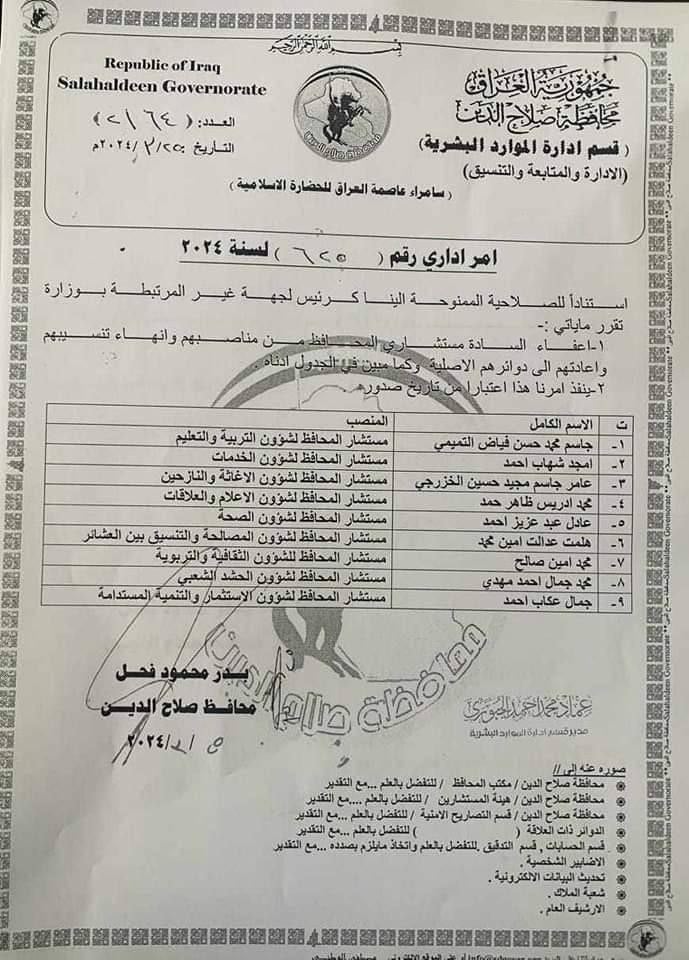 بسم الله الرحمن الرحيم
Republic of Iraq
Salahaldeen Governorate
جمهورية العراق
محافظة صلاح الدين
( قسم ادارة الموارد البشرية )
(الادارة والمتابعة والتنسيق)
العدد: ( ٢١٦٤ )
التاريخ: ٢٠٢٤/٣/٢٥م
( سامراء عاصمة العراق للحضارة الاسلامية )
امر اداري رقم ( ٦٢٥ ) لسنة ٢٠٢٤
استناداً للصلاحية الممنوحة الينا كرئيس لجهة غير المرتبطة بوزارة
تقرر ماياتي :-
١-اعفاء السادة مستشاري المحافظ من مناصبهم وانهاء تنسيبهم
واعادتهم الى دوائرهم الاصلية وكما مبين في الجدول ادناه .
٢-ينفذ امرنا هذا اعتبارا من تاريخ صدوره .
ت الاسم الكامل المنصب
١- جاسم محمد حسن فياض التميمي مستشار المحافظ لشؤون التربية والتعليم
٢- امجد شهاب احمد مستشار المحافظ لشؤون الخدمات
٣- عامر جاسم مجيد حسين الخزرجي مستشار المحافظ لشؤون الاغاثة والنازحين
٤- محمد ادريس ظاهر حمد مستشار المحافظ لشؤون الاعلام والعلاقات
٥- عادل عبد عزيز احمد مستشار المحافظ لشؤون الصحة
٦- هلمت عدالت امين محمد مستشار المحافظ لشؤون المصالحة والتنسيق بين العشائر
٧- محمد امين صالح مستشار المحافظ للشؤون الثقافية والتربوية
٨- محمد جمال احمد مهدي مستشار المحافظ لشؤون الحشد الشعبي
٩- جمال عكاب احمد مستشار المحافظ لشؤون الاستثمار والتنمية المستدامة
محافظة صلاح الدين
بدر محمود فحل
محافظ صلاح الدين
٢٠٢٤/
عماد محمد احمد الجبوري
مدير قسم ادارة الموارد البشرية
صوره عنه إلى //
محافظة صلاح الدين / مكتب المحافظ / للتفضل بالعلم ...مع التقدير
محافظة صلاح الدين / هيئة المستشارين / للتفضل بالعلم ....مع التقدير
محافظة صلاح الدين / قسم التصاريح الامنية / للتفضل بالعلم ...مع التقدير
الدوائر ذات العلاقة ( ) للتفضل بالعلم ...مع التقدير
قسم الحسابات , قسم التدقيق .للتفضل بالعلم واتخاذ مايلزم بصدده ...مع التقدير
الاضابير الشخصية .
تحديث البيانات الالكترونية .
شعبة الملاك .
الارشيف العام .